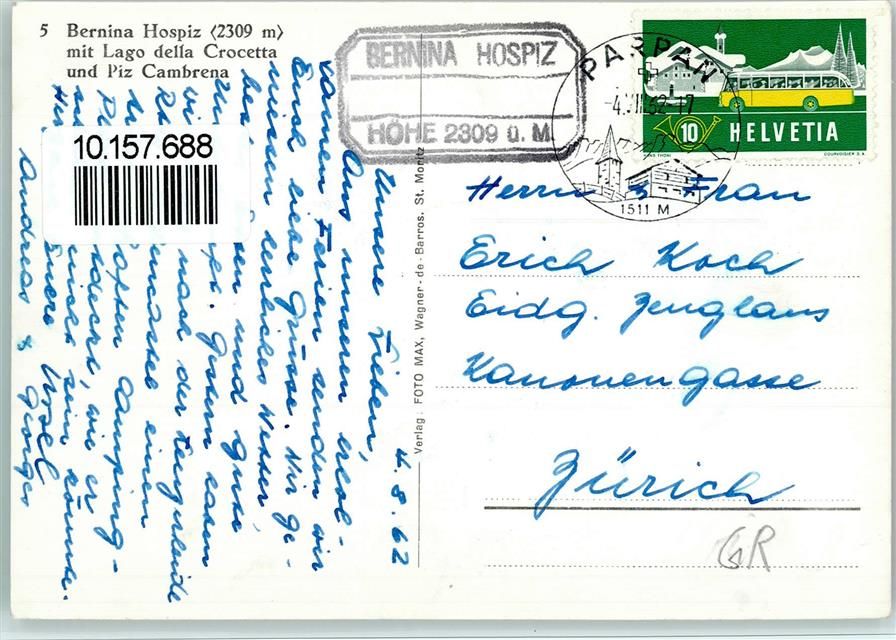 5 Bernina Hospiz (2309 m)
mit Lago della Crocetta
und Piz Cambrena
BERNINA HOSPIZ
HÖHE 2309 ü. M.
PARPAN
-4.VIII.62-17
1511 M
10 HELVETIA
HANS THÖNI
COURVOISIER S.A.
10.157.688
4.8.62
Unsere Lieben,
Aus unseren erhol-
samen Ferien senden wir
Euch liebe Grüsse. Wir ge-
niessen herrliches Wetter,
und gute
Gestern sassen
wir nach der Lenzerheide
einen
Camping-
wie er
nicht sein könnte.
Eure Ursel
Andreas & Georges
Verlag: FOTO MAX, Wagner-de-Barros, St. Moritz
Herrn & Frau
Erich Koch
Eidg. Zeughaus
Kanonengasse
Zürich
GR